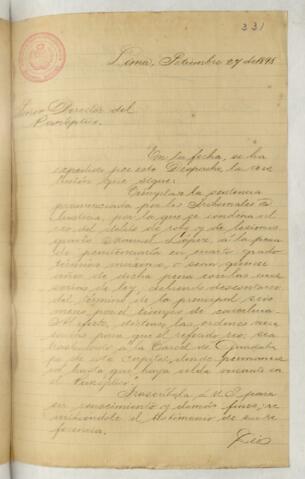 331
Lima, Setiembre 27 de 1898.
Señor Director del
Panóptico.
En la fecha, se ha
expedido por este Despacho la reso-
lución que sigue:
Cúmplase la sentencia
pronunciada por los Tribunales de
Justicia, por la que se condena al
reo del delito de robo y de lesiones
Manuel López á la pena
de penitenciaría en cuarto grado
término máximo, ó sean quince
años de dicha pena con las acce-
sorias de ley, debiendo descontarse
del término de la principal seis
meses por el tiempo de carcelería.
Al efecto, díctense las órdenes nece-
sarias para que el referido reo, sea
trasladado á la Cárcel de Guadalu-
pe de esta capital, donde permanece-
rá hasta que haya celda vacante en
el Panóptico.
Trascríbola á U.S. para
su conocimiento y demás fines; re-
mitiéndole el testimonio de su re-
ferencia.
Dios